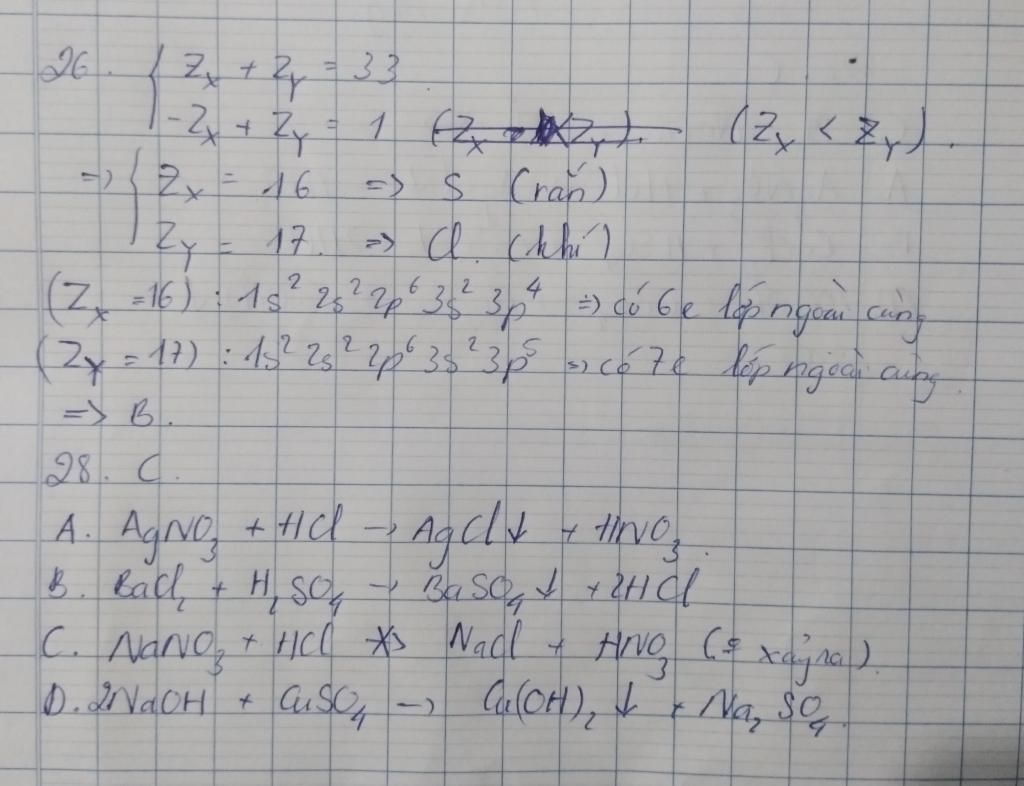 26. { Zₓ + Zᵧ = 33
-Zₓ + Zᵧ = 1 (Zₓ < Zᵧ).
=> { Zₓ = 16 => S (rắn)
Zᵧ = 17. => Cl. (khí)
(Zₓ = 16) : 1s² 2s² 2p⁶ 3s² 3p⁴ => có 6e lớp ngoài cùng
(Zᵧ = 17) : 1s² 2s² 2p⁶ 3s² 3p⁵ => có 7e lớp ngoài cùng.
=> B.
28. C.
A. AgNO₃ + HCl → AgCl↓ + HNO₃.
B. BaCl₂ + H₂SO₄ → BaSO₄↓ + 2HCl
C. NaNO₃ + HCl ↛ NaCl + HNO₃ ( xảy ra).
D. 2NaOH + CuSO₄ → Cu(OH)₂↓ + Na₂SO₄.